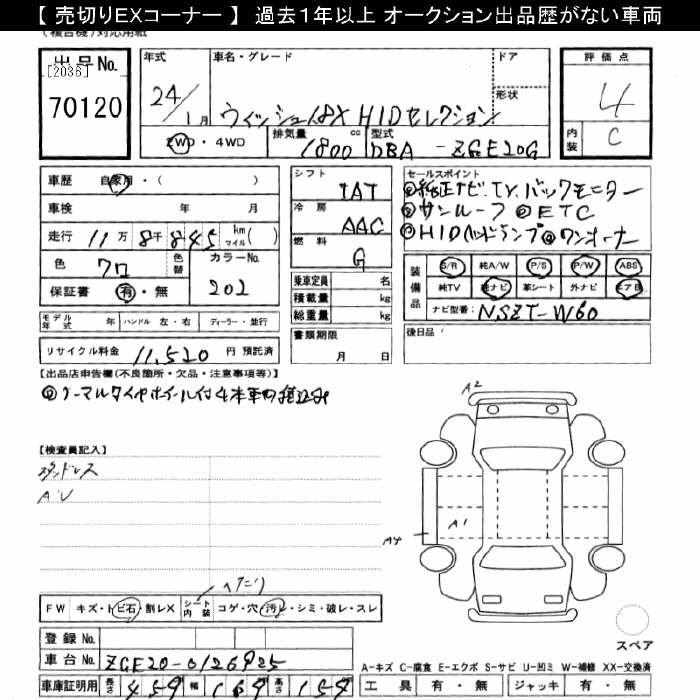 【 売切りEXコーナー 】 過去1年以上 オークション出品歴がない車両
(複合機)対応用紙
出品No.
[2036]
70120
年式
24/1月
車名・グレード
ウィッシュ1.8X HIDセレクション
ドア
形状
評価点
4
内装
C
2WD・4WD
排気量
1800 cc
型式
DBA - ZGE20G
車歴 自家用・( )
車検 年 月
走行 11万8千845 km マイル( )
色 クロ
色替
カラーNo. 202
保証書 有・無
シフト
IAT
冷房
AAC
燃料
G
乗車定員 名
積載量 kg
総重量 kg
書類期限
月 日
セールスポイント
◎純正ナビ.TV.バックモニター
◎サンルーフ ◎ETC
◎HIDヘッドランプ◎ワンオーナー
装備品
S/R 純A/W P/S P/W ABS
純TV 純ナビ 革シート 外ナビ エアB
ナビ型番: NSZT-W60
後日品
モデル年式 年 ハンドル 左・右 ディーラー・並行
リサイクル料金 11,520 円 預託済
【出品店申告欄(不良箇所・欠品・注意事項等)】
◎ノーマルタイヤホイール付4本車内積込み
【検査員記入】
スタッドレス
AU
A2
A1
A4
ヘタリ
FW キズ・トビ石・割レX シート内装 コゲ・穴・汚レ・シミ・破レ・スレ
登録No.
車台No. ZGE20-0126925
車庫証明用 長さ 459 幅 169 高さ 159
スペア
A-キズ C-腐食 E-エクボ S-サビ U-凹ミ W-補修 XX-交換済
工具 有・無 ジャッキ 有・無